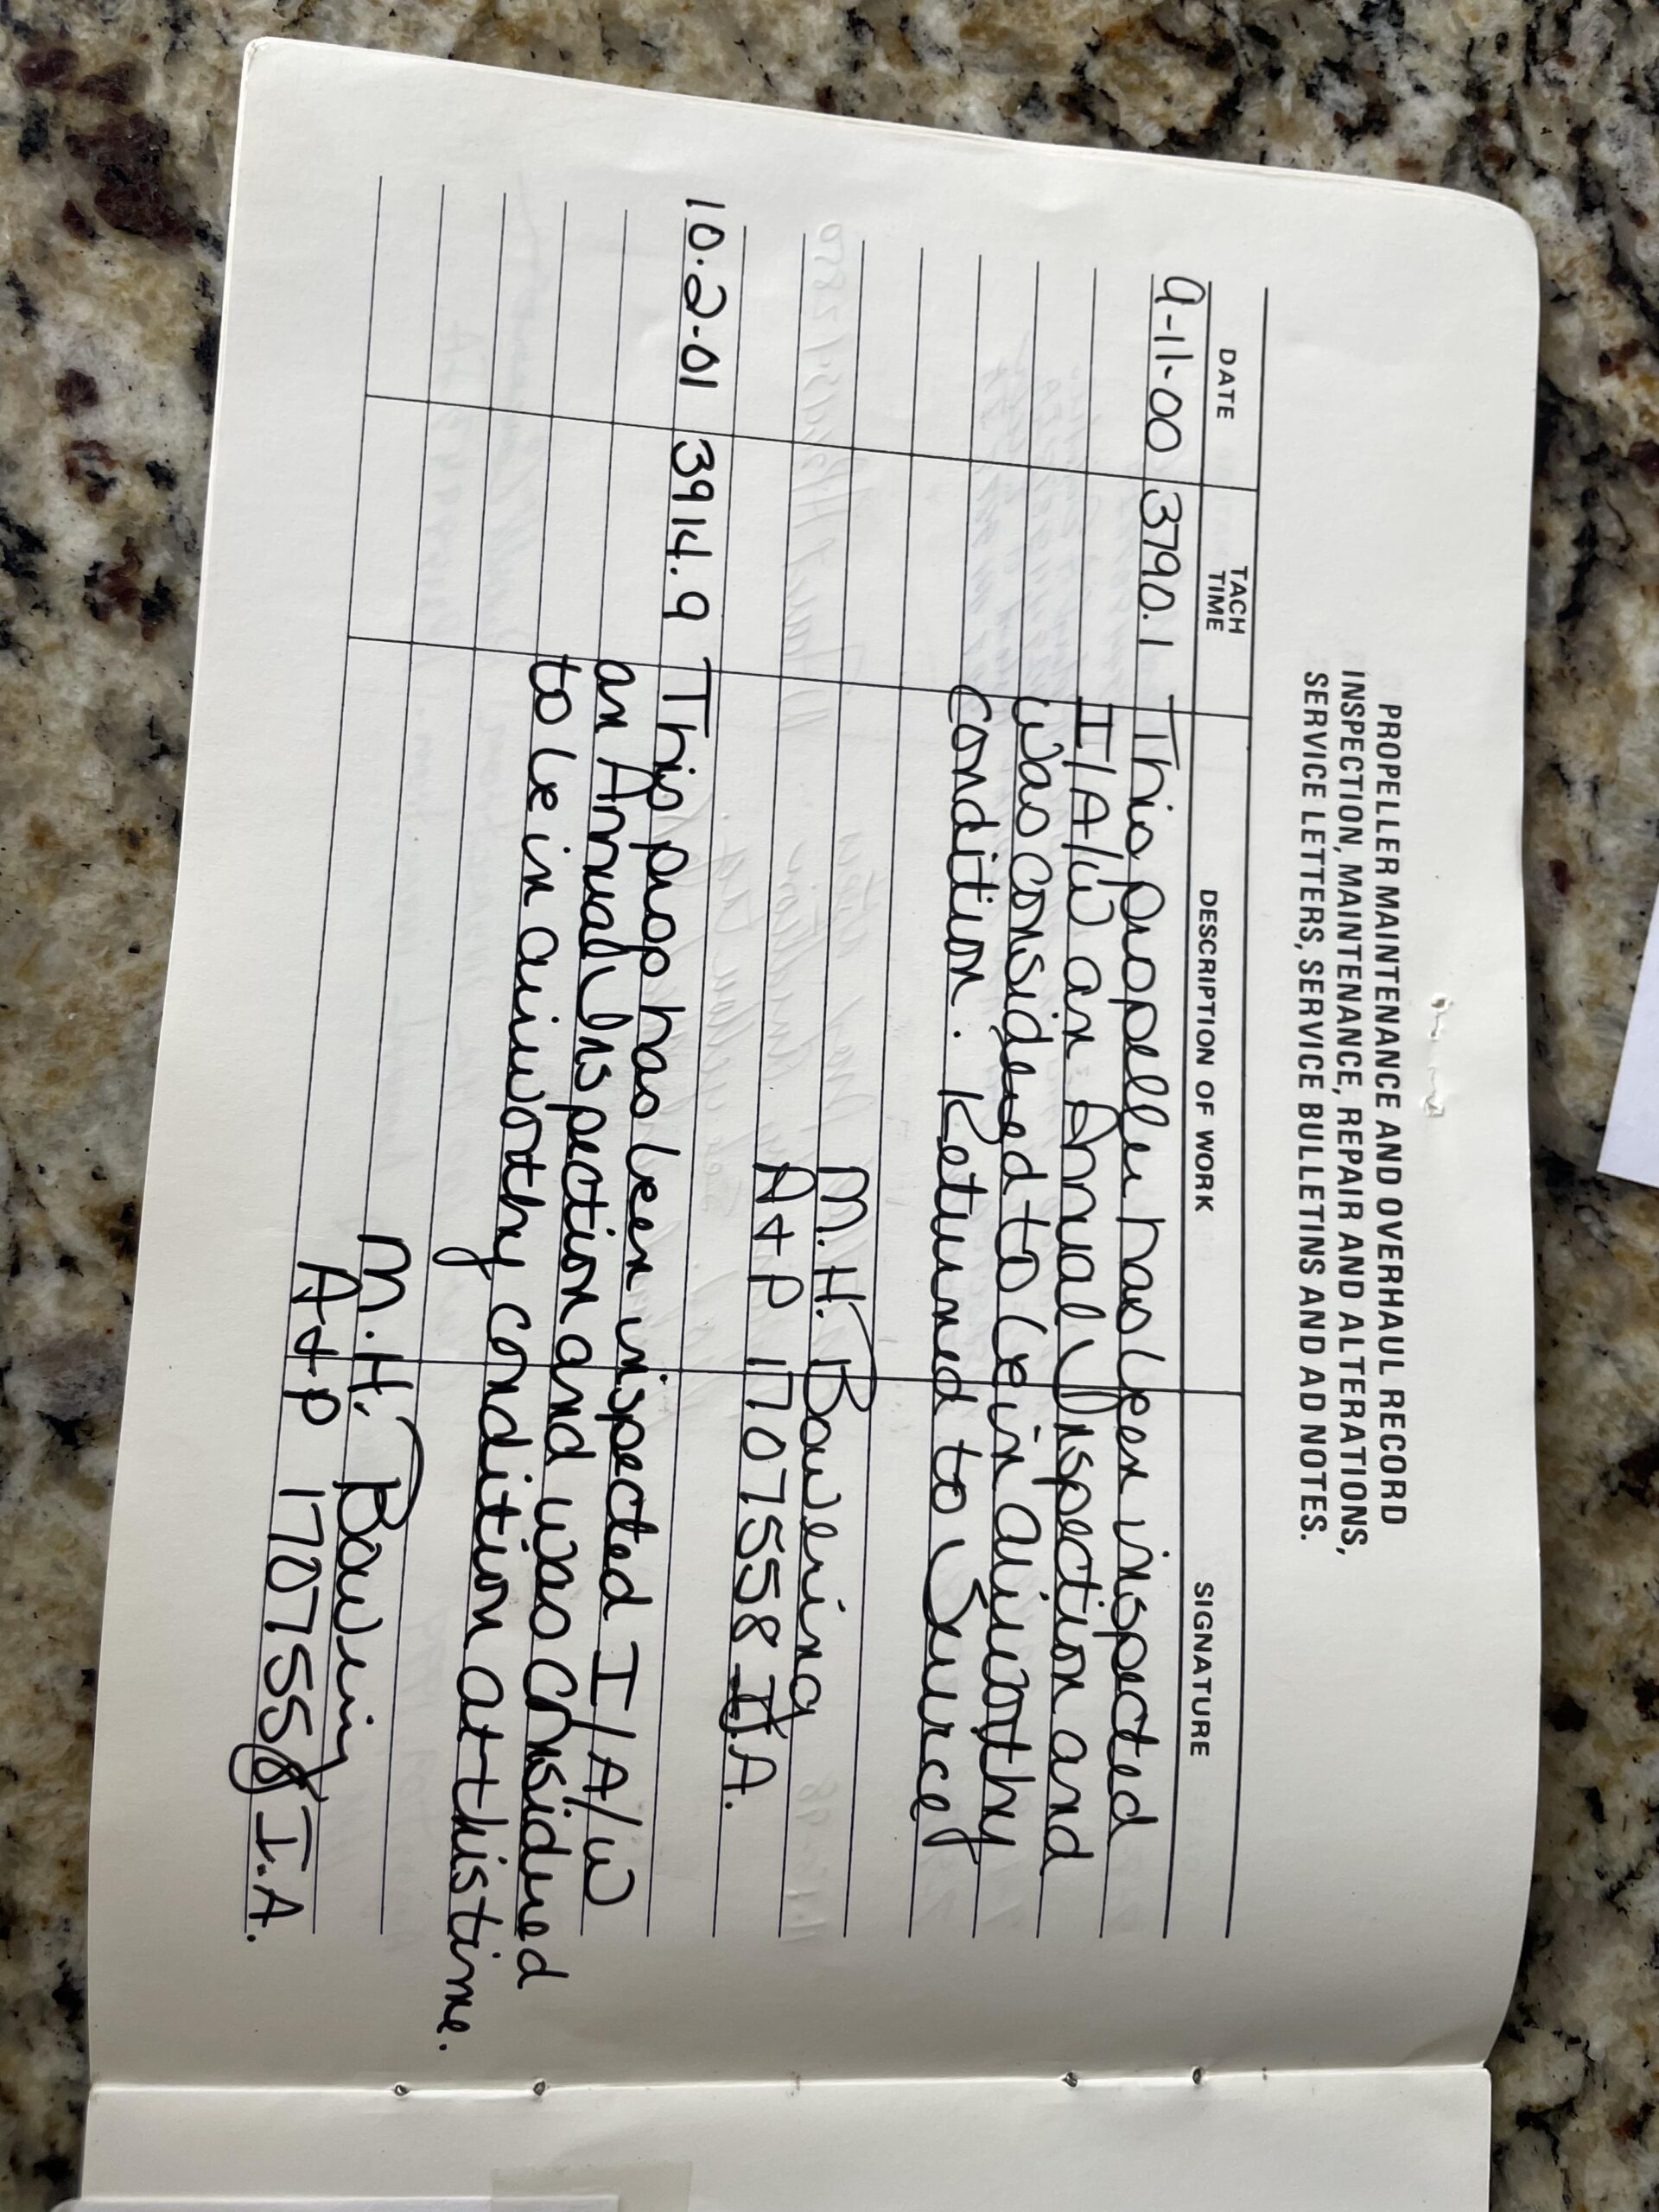 PROPELLER MAINTENANCE AND OVERHAUL RECORD
INSPECTION, MAINTENANCE, REPAIR AND ALTERATIONS,
SERVICE LETTERS, SERVICE BULLETINS AND AD NOTES.
DATE TACH TIME DESCRIPTION OF WORK SIGNATURE
9-11-00 3790.1 This propeller has been inspected
I/A/W an Annual Inspection and
was considered to be in airworthy
condition. Returned to Service
M.H. Bowering
A+P 1707558 I.A.
10-2-01 3914.9 This prop has been inspected I/A/W
an Annual Inspection and was considered
to be in airworthy condition at this time.
M.H. Bowering
A+P 1707558 I.A.